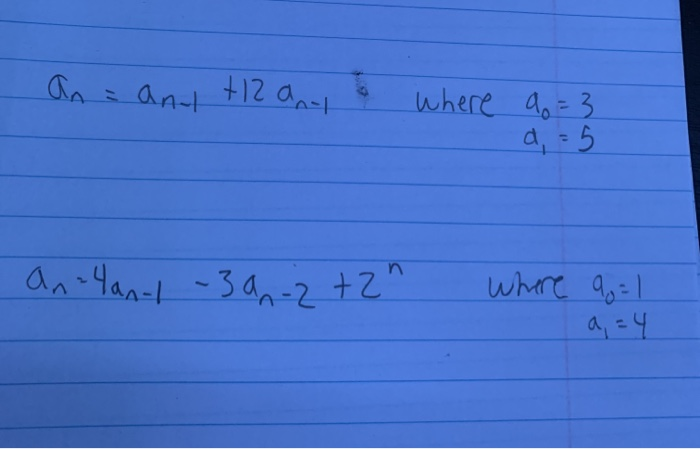 aₙ = aₙ₋₁ + 12 aₙ₋₁ where a₀ = 3
a₁ = 5
aₙ = 4aₙ₋₁ - 3aₙ₋₂ + 2ⁿ where a₀ = 1
a₁ = 4